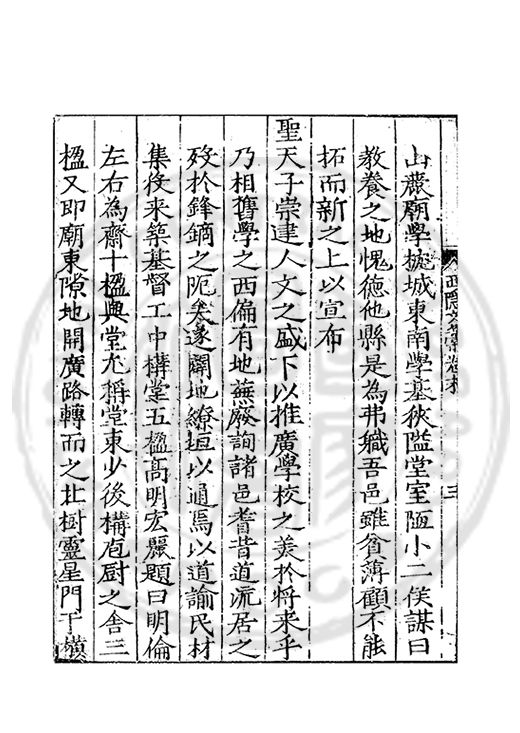 山嚴廟學據城東南學基狹隘堂室陋小二侯謀曰
教養之地愧德他縣是為弗職吾邑雖貧薄顧不能
拓而新之上以宣布
聖天子崇建人文之盛下以推廣學校之美於將來乎
乃相舊學之西偏有地蕪廢詢諸邑耆昔道流居之
歿於鋒鏑之阨矣遂闢地繚垣以通焉以道諭民材
集役来築基督工中構堂五楹高明宏麗題曰明倫
左右為齋十楹與堂尤稱堂東少後構庖廚之舍三
楹又即廟東隙地開廣路轉而之北樹靈星門于横